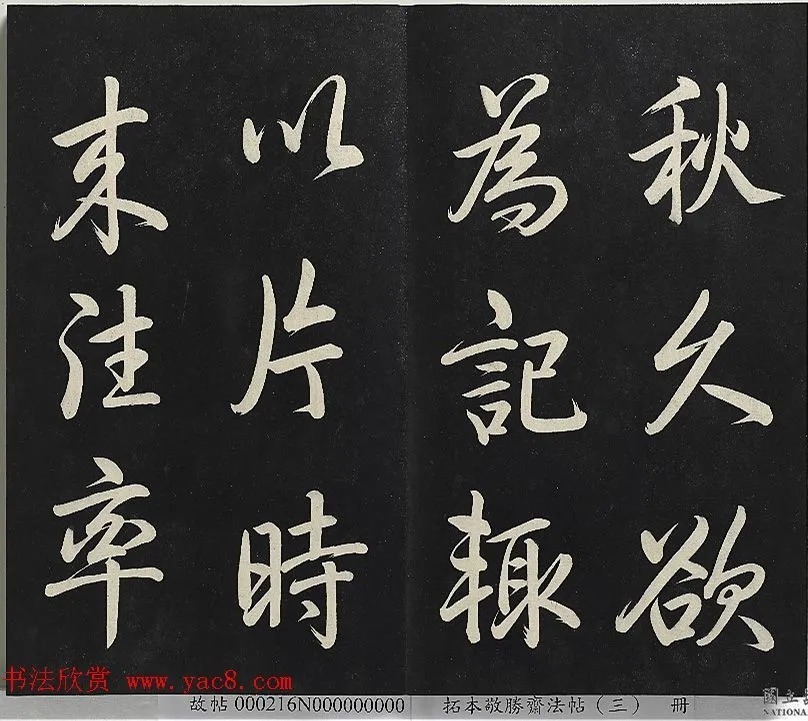 秋久欲
為記輙
以片時
来往率
书法欣赏 www.yac8.com
故帖 000216N000000000 拓本敬勝齋法帖（三） 册
國立
NATIONA